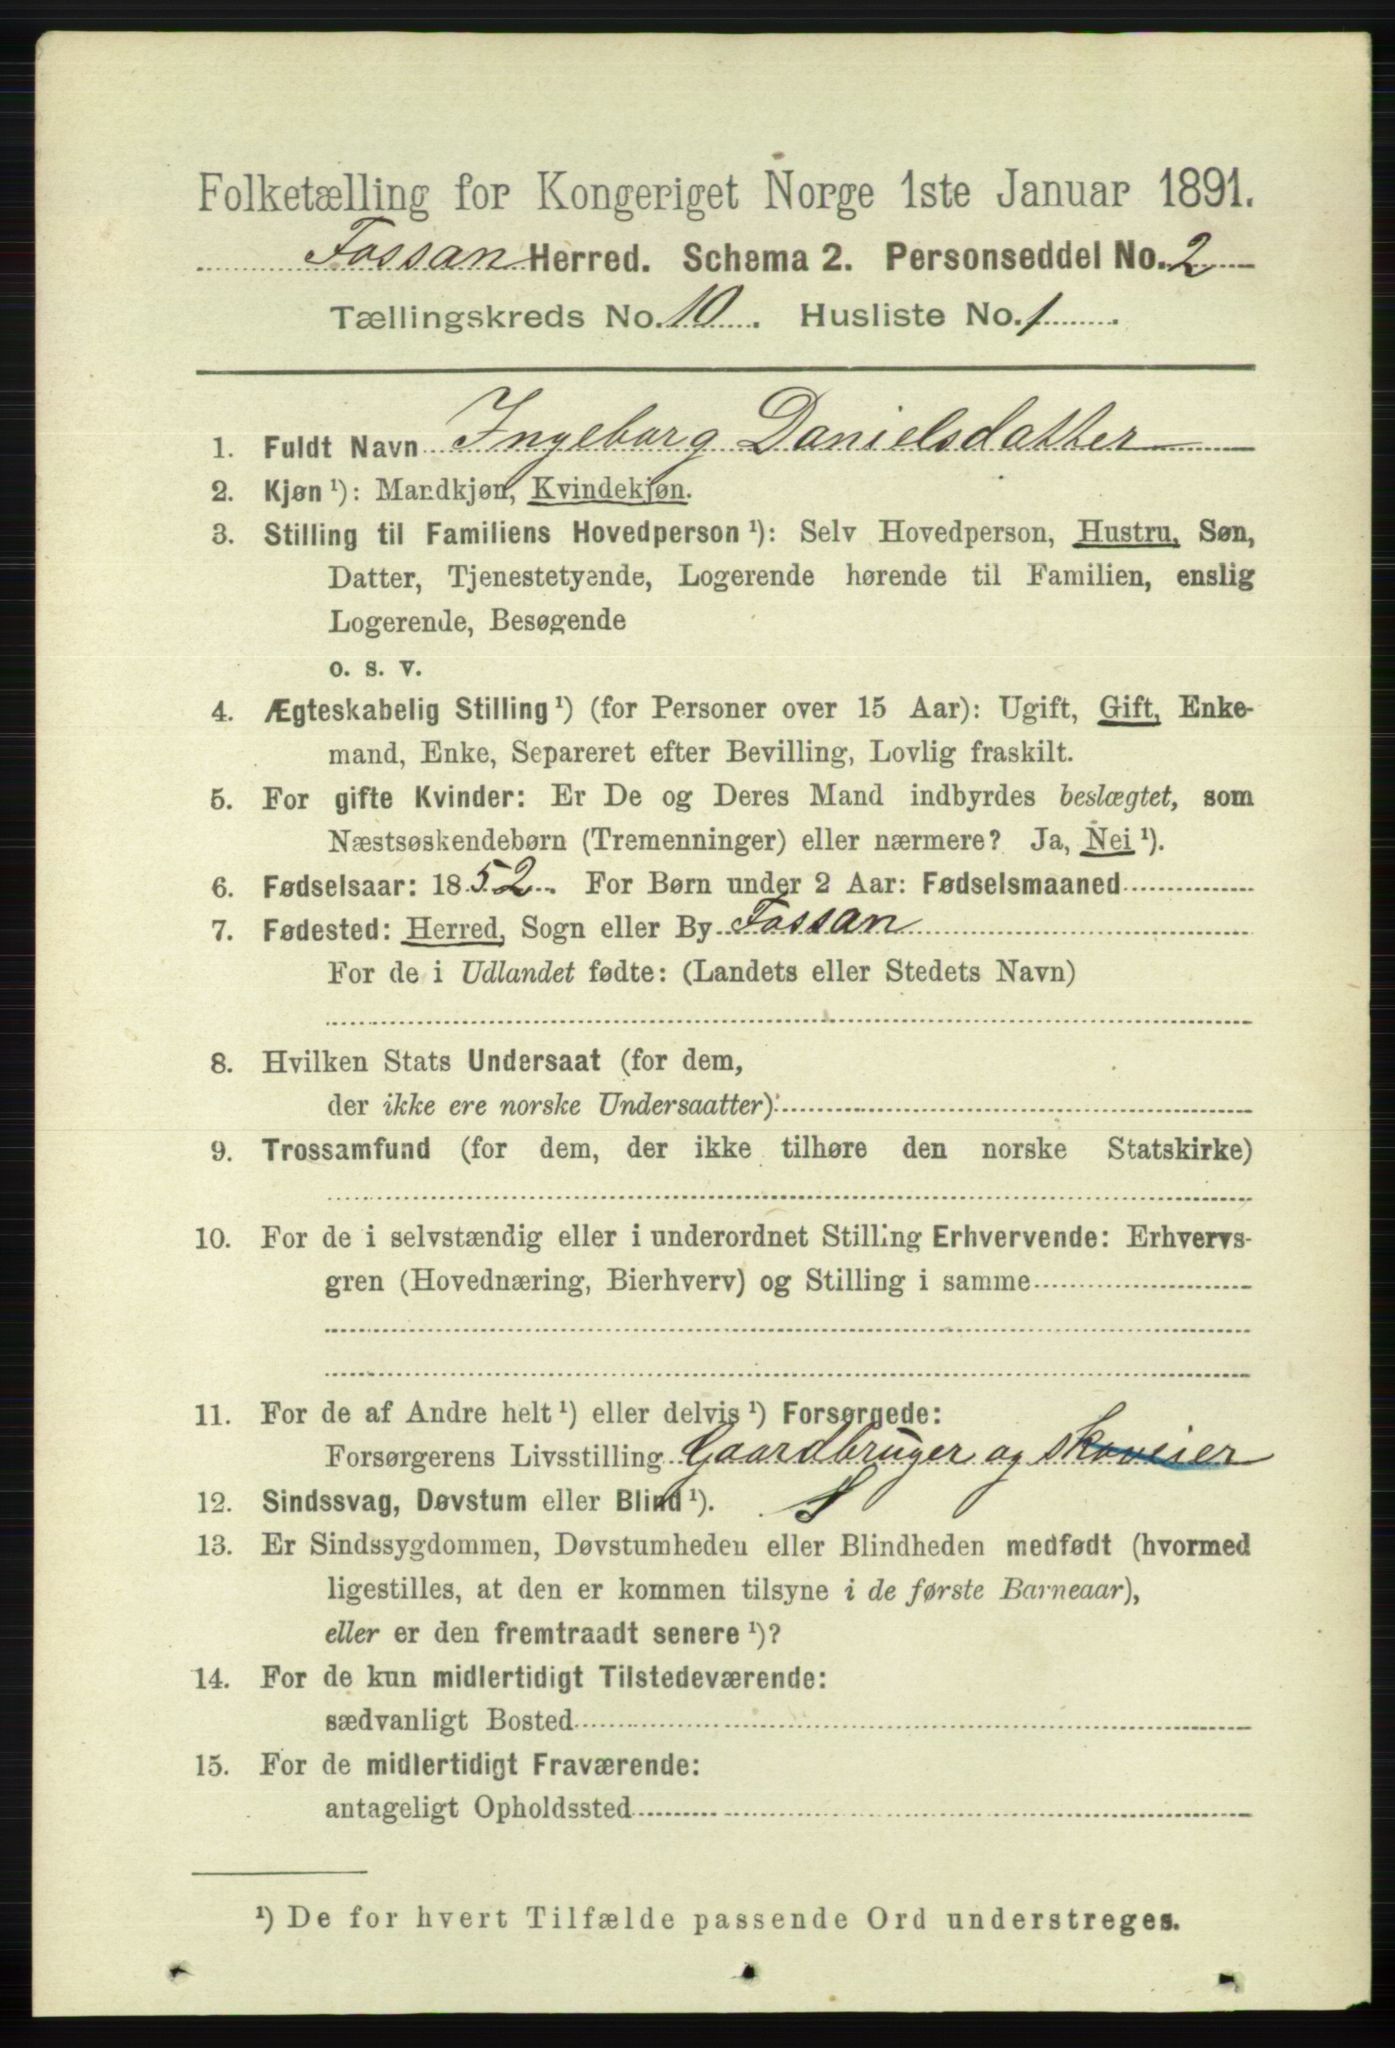 Folketælling for Kongeriget Norge 1ste Januar 1891.
Fossan Herred. Schema 2. Personseddel No. 2
Tællingskreds No. 10. Husliste No. 1
1. Fuldt Navn Ingeborg Danielsdatter
2. Kjøn ¹): Mandkjøn, Kvindekjøn.
3. Stilling til Familiens Hovedperson ¹): Selv Hovedperson, Hustru, Søn,
Datter, Tjenestetyende, Logerende hørende til Familien, enslig
Logerende, Besøgende
o. s. v.
4. Ægteskabelig Stilling ¹) (for Personer over 15 Aar): Ugift, Gift, Enke-
mand, Enke, Separeret efter Bevilling, Lovlig fraskilt.
5. For gifte Kvinder: Er De og Deres Mand indbyrdes beslægtet, som
Næstsøskendebørn (Tremenninger) eller nærmere? Ja, Nei ¹).
6. Fødselsaar: 1852. For Børn under 2 Aar: Fødselsmaaned
7. Fødested: Herred, Sogn eller By Fossan
For de i Udlandet fødte: (Landets eller Stedets Navn)
8. Hvilken Stats Undersaat (for dem,
der ikke ere norske Undersaatter):
9. Trossamfund (for dem, der ikke tilhøre den norske Statskirke)
10. For de i selvstændig eller i underordnet Stilling Erhvervende: Erhvervs-
gren (Hovednæring, Bierhverv) og Stilling i samme
11. For de af Andre helt ¹) eller delvis ¹) Forsørgede:
Forsørgerens Livsstilling Gaardbruger og skoveier
12. Sindssvag, Døvstum eller Blind ¹). S
13. Er Sindssygdommen, Døvstumheden eller Blindheden medfødt (hvormed
ligestilles, at den er kommen tilsyne i de første Barneaar),
eller er den fremtraadt senere ¹)?
14. For de kun midlertidigt Tilstedeværende:
sædvanligt Bosted
15. For de midlertidigt Fraværende:
antageligt Opholdssted
¹) De for hvert Tilfælde passende Ord understreges.